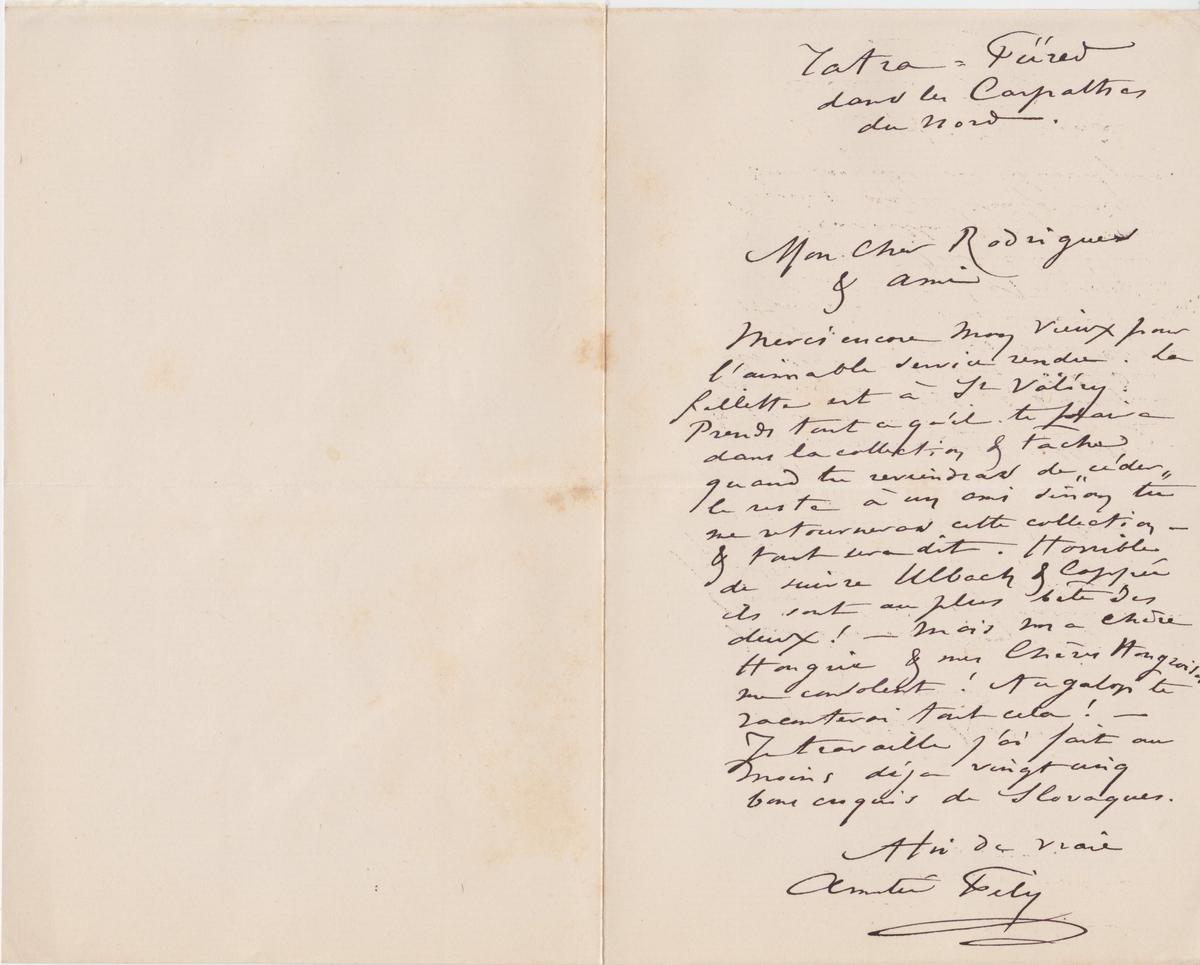 Tatra = Füred
dans les Carpathes
du Nord.
Mon Cher Rodrigues
& ami
Merci encore mon vieux pour
l'aimable service rendu. La
fillette est à St Valéry.
Prends tout ce qu'il te plaira
dans la collection & tache
quand tu reviendras de „céder„
le reste à un ami sinon tu
me retourneras cette collection –
& tout sera dit. Horrible
de suivre Ulbach & Coppée
ils sont au plus bête des
deux! – Mais ma chère
Hongrie & mes Chères Hongroises
me consolent! Au galop te
raconterai tout cela! –
Je travaille j'ai fait au
moins déja vingt cinq
bons croquis de Slovaques.
A toi de vraie
amitié Fély